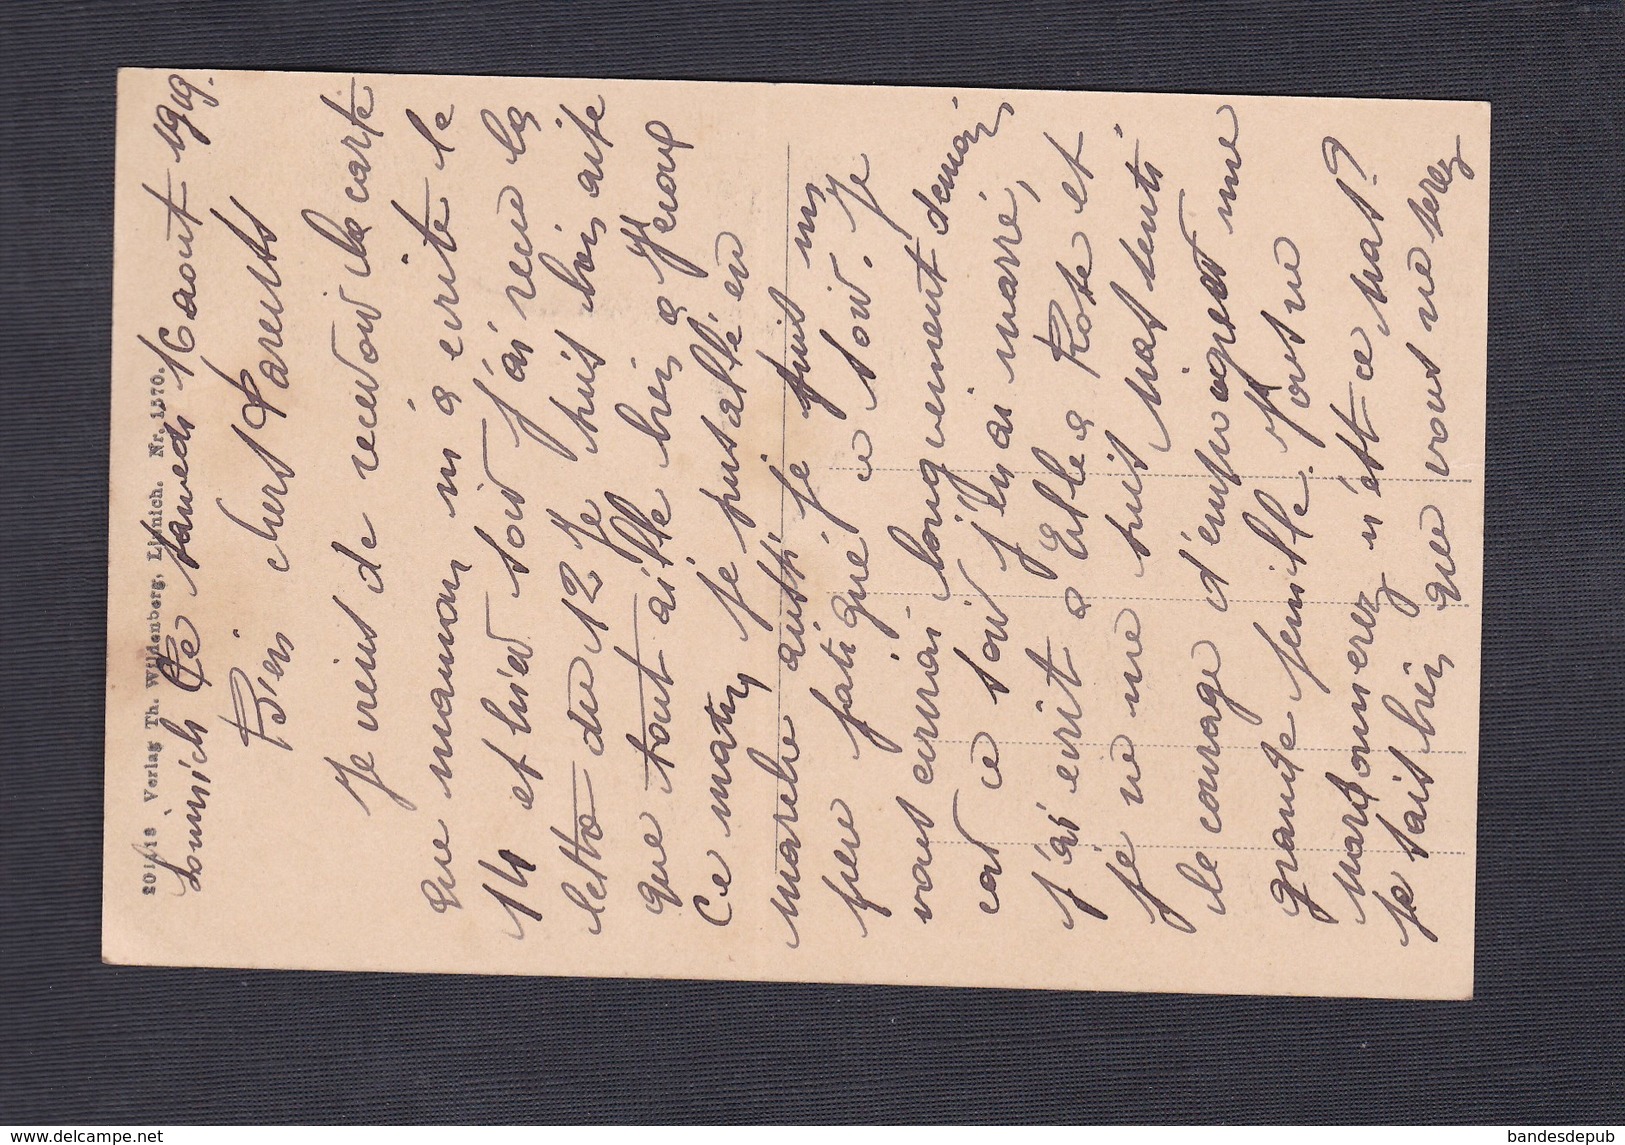 20158 Verlag Th. Wildenberg, Linnich. Nr. 1570.
Linnich le samedi 16 aout 1919.
Bien chers Parents
Je viens de recevoir la carte
que maman m'a ecrite le
14 et hier soir j'ai recu la
lettre du 12 Je suis bien aise
que tout aille bien a
Ce matin je suis allé en
marche aussi je suis un
peu fatigué ce soir. Je
vous ecrirai longuement demain
car ce soir j'en ai marre,
j'ai ecrit a Elle a Rose et
je ne me suis pas senti
le courage d'entreprendre une
grande feuille. Vous me
pardonnerez n'est ce pas?
je sais bien que vous ne serez
bandesdepub